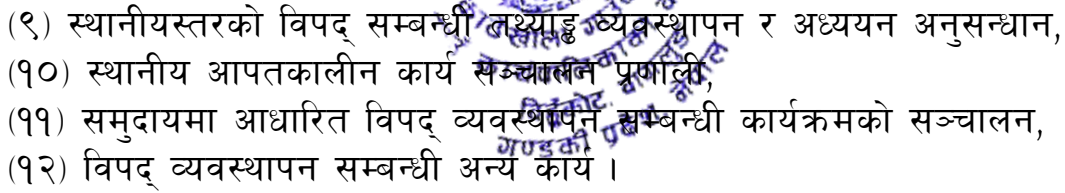 (९) स्थानीयस्तरको विपद् सम्बन्धी तथ्याङ्क व्यवस्थापन र अध्ययन अनुसन्धान,
(१०) स्थानीय आपतकालीन कार्य सञ्चालन प्रणाली,
(११) समुदायमा आधारित विपद् व्यवस्थापन सम्बन्धी कार्यक्रमको सञ्चालन,
(१२) विपद् व्यवस्थापन सम्बन्धी अन्य कार्य ।
गण्डकी प्रदेश, नेपाल